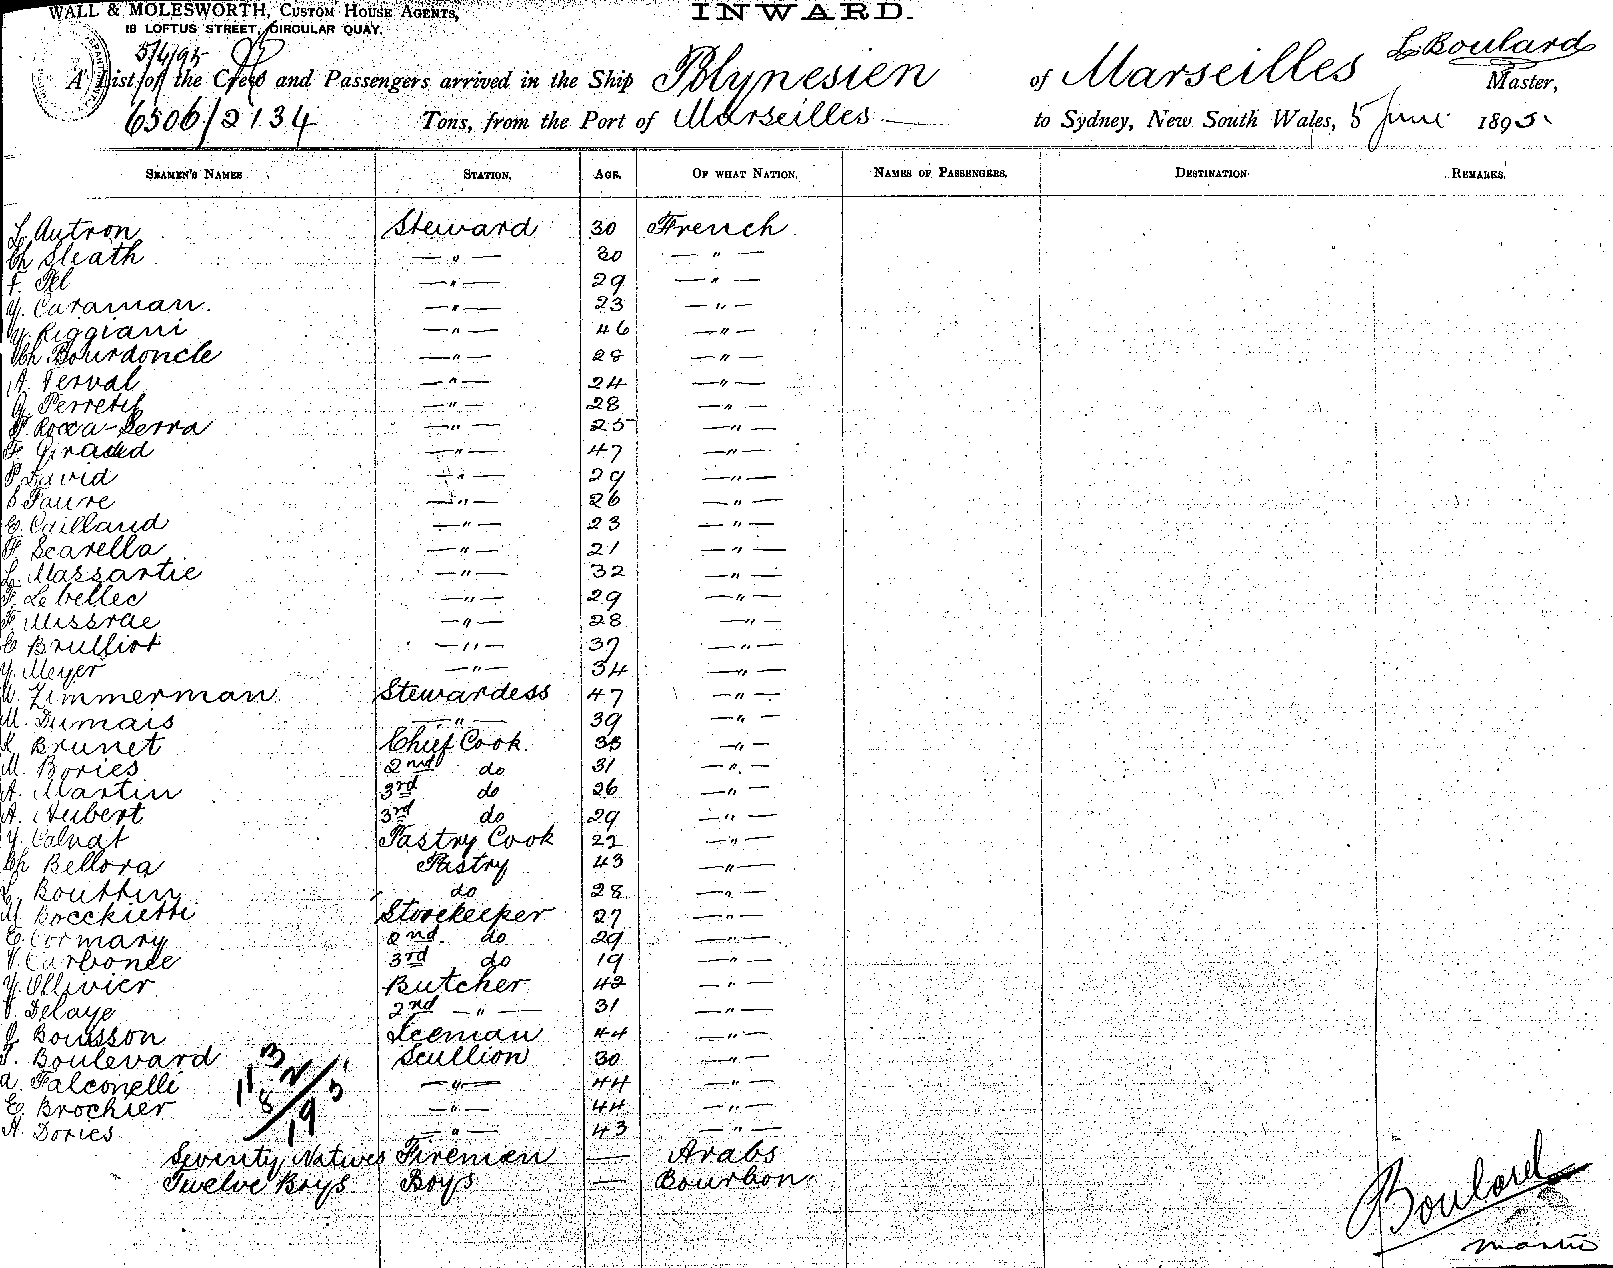 WALL & MOLESWORTH, CUSTOM HOUSE AGENTS,
18 LOFTUS STREET, CIRCULAR QUAY.
INWARD.
5/4/95
L Boulard
A List of the Crew and Passengers arrived in the Ship Polynesien of Marseilles Master,
6506/2134 Tons, from the Port of Marseilles to Sydney, New South Wales, 5 June 1895.
SEAMEN'S NAMES STATION. AGE. OF WHAT NATION. NAMES OF PASSENGERS. DESTINATION REMARKS.
L Autron Steward 30 French
Ch Sleath —"— 30 —"—
F. Pel —"— 29 —"—
Y. Caraman. —"— 23 —"—
Y. Riggiani —"— 46 —"—
Ch Bourdoncle —"— 28 —"—
A. Terval —"— 24 —"—
Perretil —"— 28 —"—
F Rocca-Serra —"— 25 —"—
F. Giraud —"— 47 —"—
P David —"— 29 —"—
Faure —"— 26 —"—
E. Cailland —"— 23 —"—
F Scarella —"— 21 —"—
L Massartie —"— 32 —"—
F. Le bellec —"— 29 —"—
F. Missrae —"— 28 —"—
C Brulliot —"— 37 —"—
Y. Meyer —"— 34 —"—
Zimmerman Stewardess 47 —"—
M. Dumais —"— 39 —"—
Brunet Chief Cook. 35 —"—
M. Bories 2nd do 31 —"—
A. Martin 3rd do 26 —"—
A. Aubert 3rd do 29 —"—
Y Calvat Pastry Cook 22 —"—
Ch Bellora Pastry 43 —"—
L. Bouttin do 28 —"—
M Bocchietti Storekeeper 27 —"—
E Cormary 2nd do 29 —"—
V Carbonee 3rd do 19 —"—
Y Ollivier Butcher 42 —"—
V. Delaye 2nd —"— 31 —"—
J Bousson Iceman 44 —"—
Boulevard Scullion 30 —"—
a Falconelli —"— 44 —"—
E. Brochier —"— 44 —"—
A Dories —"— 43 —"—
Seventy Natives Firemen — Arabs
Twelve Boys Boys — Bourbon.
Boulard
Master